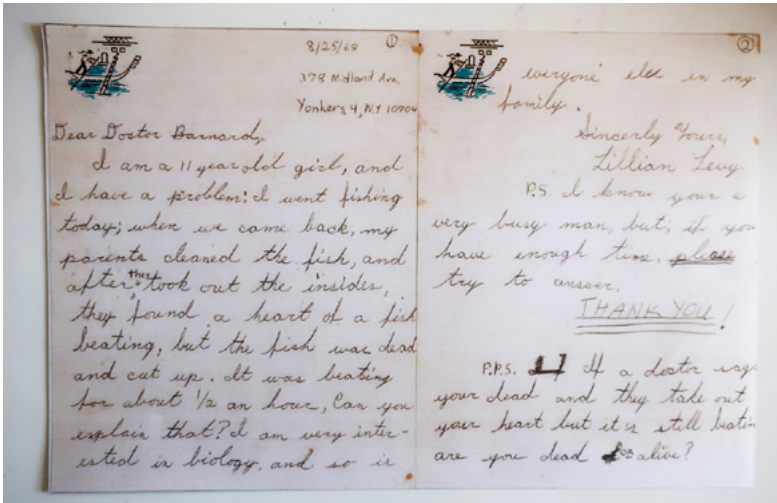 8/25/68 ①
378 Midland Ave.
Yonkers 4, N.Y 10704
Dear Doctor Barnard,
I am a 11 year old girl, and
I have a problem: I went fishing
today; when we came back, my
parents cleaned the fish, and
after they took out the insides,
they found a heart of a fish
beating, but the fish was dead
and cut up. It was beating
for about 1/2 an hour, Can you
explain that? I am very inter-
ested in biology, and so is
②
everyone else in my
family.
Sincerly Yours,
Lillian Levy
P.S. I know your a
very busy man, but; if you
have enough time, please
try to answer.
THANK YOU!
P.P.S. If a doctor says
your dead and they take out
your heart but it is still beatin
are you dead or alive?